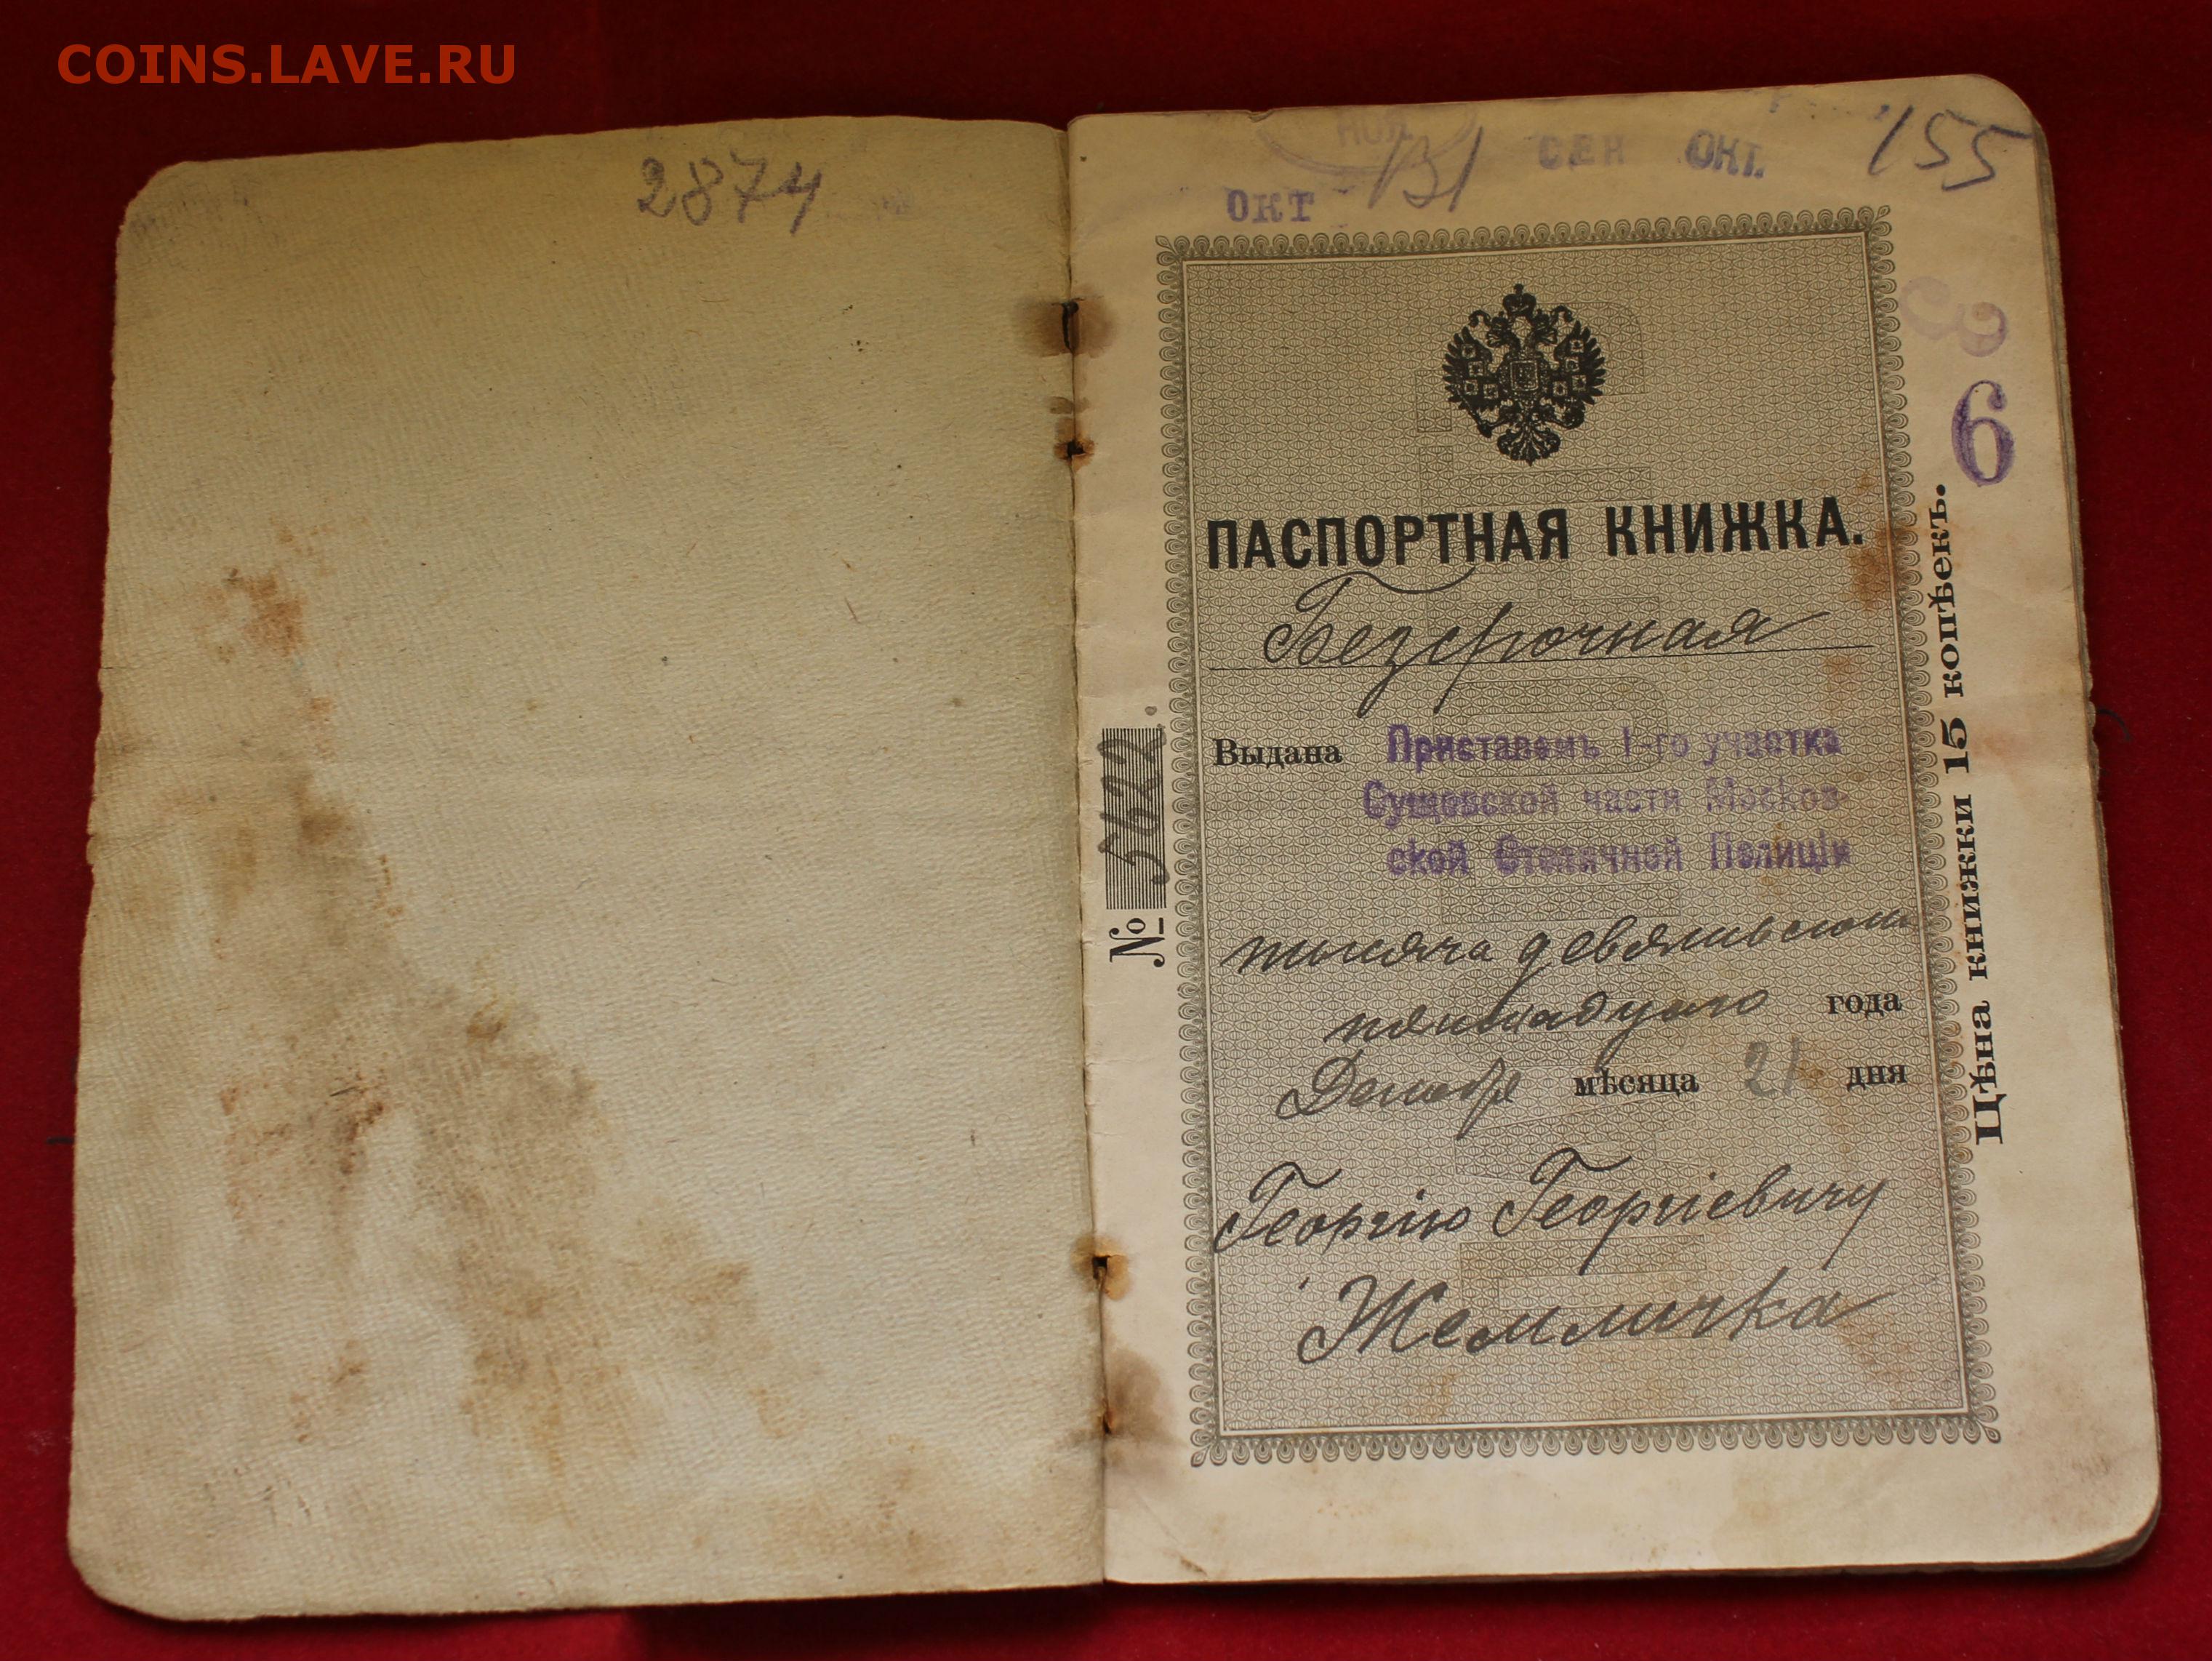 COINS.LAVE.RU
2874
155
131
СЕН ОКТ.
ОКТ
6
ПАСПОРТНАЯ КНИЖКА.
Безсрочная
Выдана Приставомъ 1-го участка
Сущевской части Москов-
ской Столичной Полиціи
тысяча девятьсот
пятнадцаго года
Декабря мѣсяца 21 дня
Георгію Георгіевичу
Жемличка
№ 5622.
Цѣна книжки 15 копѣекъ.